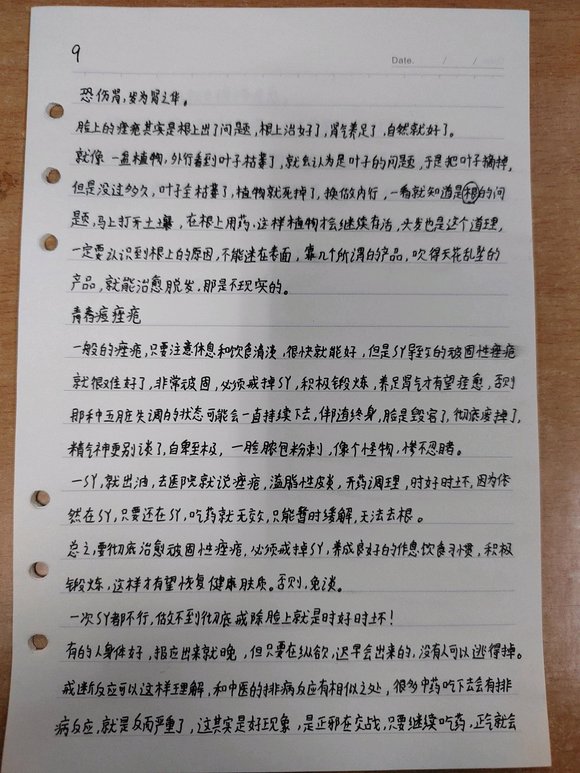 9
Date. / /
恐伤肾,发为肾之华。
脸上的痤疮其实是根上出了问题,根上治好了,肾气养足了,自然就好了。
就像一盆植物,外行看到叶子枯萎了,就会认为是叶子的问题,于是把叶子摘掉,
但是没过多久,叶子全枯萎了,植物就死掉了,换做内行,一看就知道是根的问
题,马上打开土壤,在根上用药,这样植物才会继续存活,头发也是这个道理,
一定要认识到根上的原因,不能迷在表面,靠几个所谓的产品,吹得天花乱坠的
产品,就能治愈脱发,那是不现实的。
青春痘痤疮
一般的痤疮,只要注意休息和饮食清淡,很快就能好,但是SY导致的顽固性痤疮
就很难好了,非常顽固,必须戒掉SY,积极锻炼,养足肾气才有望痊愈,否则
那种五脏失调的状态可能会一直持续下去,伴随终身,脸是毁容了,彻底废掉了,
精气神更别谈了,自卑至极,一脸脓包粉刺,像个怪物,惨不忍睹。
一SY,就出油,去医院就说痤疮,溢脂性皮炎,开药调理,时好时坏,因为依
然在SY,只要还在SY,吃药就无效,只能暂时缓解,无法去根。
总之,要彻底治愈顽固性痤疮,必须戒掉SY,养成良好的作息饮食习惯,积极
锻炼,这样才有望恢复健康肤质。否则,免谈。
一次SY都不行,做不到彻底戒除脸上就是时好时坏!
有的人身体好,报应出来就晚,但只要在纵欲,迟早会出来的,没有人可以逃得掉。
戒断反应可以这样理解,和中医的排病反应有相似之处,很多中药吃下去会有排
病反应,就是反而严重了,这其实是好现象,是正邪在交战,只要继续吃药,正气就会